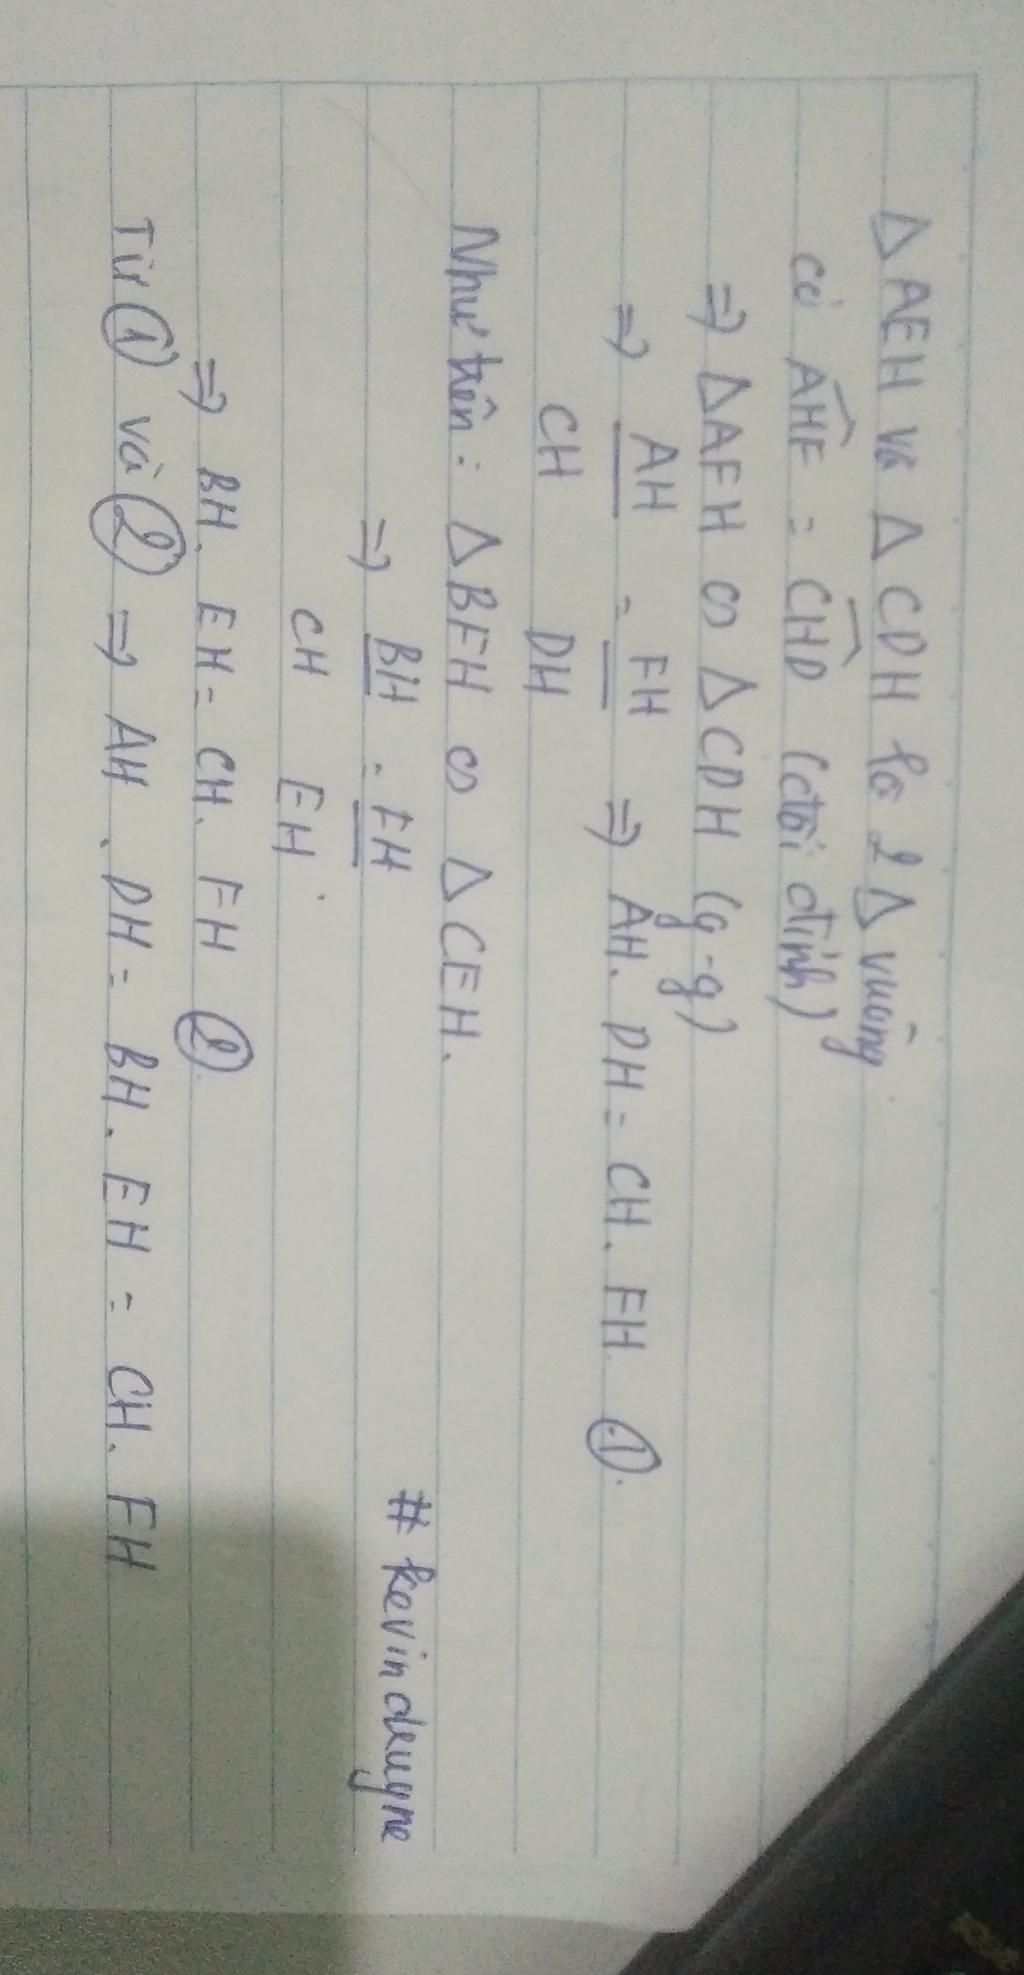 Δ AEH và Δ CDH là 2 Δ vuông
có AHF = CHD (đối đỉnh)
=> ΔAFH ∽ ΔCDH (g-g)
=> AH/CH = FH/DH => AH. DH = CH. FH ①.
Như trên: ΔBFH ∽ ΔCEH.
=> BH/CH = FH/EH.
# kevindeuyne
=> BH. EH = CH. FH ②.
Từ ① và ② => AH. DH = BH. EH = CH. FH